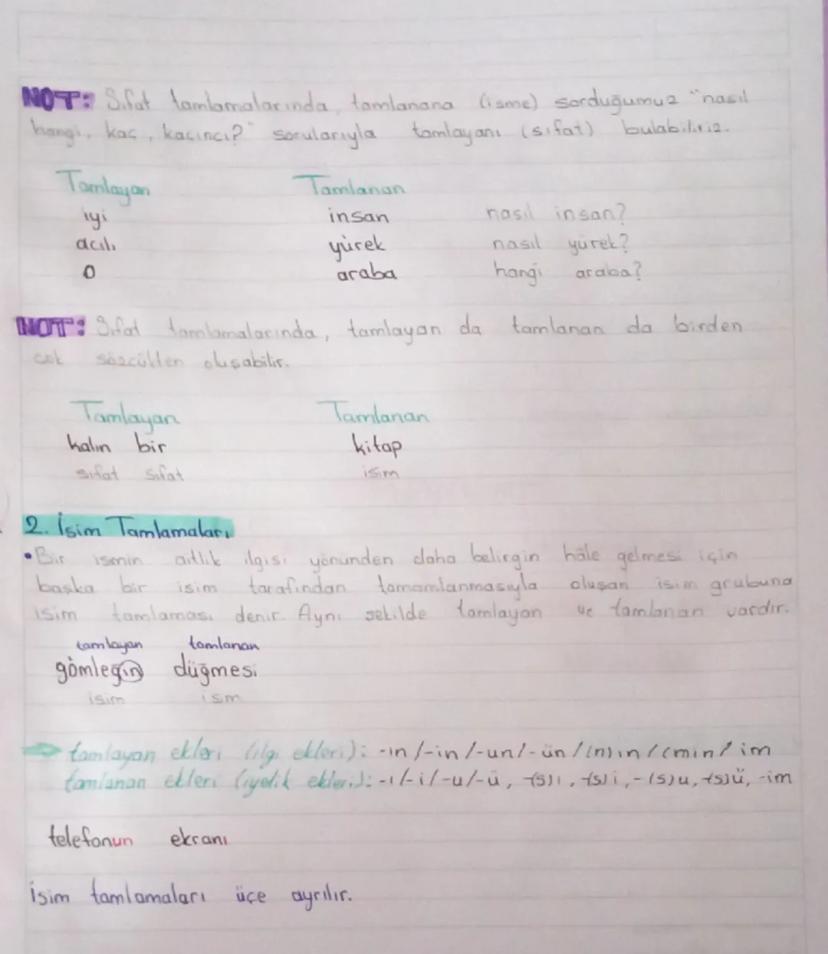 NOT: Sıfat tamlamalarında, tamlanana (isme) sorduğumuz "nasıl
hangi, kaç, kaçıncı?" sorularıyla tamlayanı (sıfat) bulabiliriz.
Tamlayan Tamlanan
iyi insan nasıl insan?
acılı yürek nasıl yürek?
O araba hangi araba?
NOT: Sıfat tamlamalarında, tamlayan da tamlanan da birden
çok sözcükten oluşabilir.
Tamlayan Tamlanan
kalın bir kitap
sıfat sıfat isim
2. İsim Tamlamaları
• Bir ismin aitlik ilgisi yönünden daha belirgin hâle gelmesi için
başka bir isim tarafından tamamlanmasıyla oluşan isim grubuna
isim tamlaması denir. Aynı şekilde tamlayan ve tamlanan vardır.
tamlayan tamlanan
gömleğin düğmesi
isim isim
tamlayan ekleri (ilgi ekleri): -ın /-in /-un/-ün /(n)ın / (nin / im
tamlanan ekleri (iyelik ekleri): -ı/-i/-u/-ü, -(s)ı, -(s)i, -(s)u, -(s)ü, -im
telefonun ekranı
isim tamlamaları üçe ayrılır.